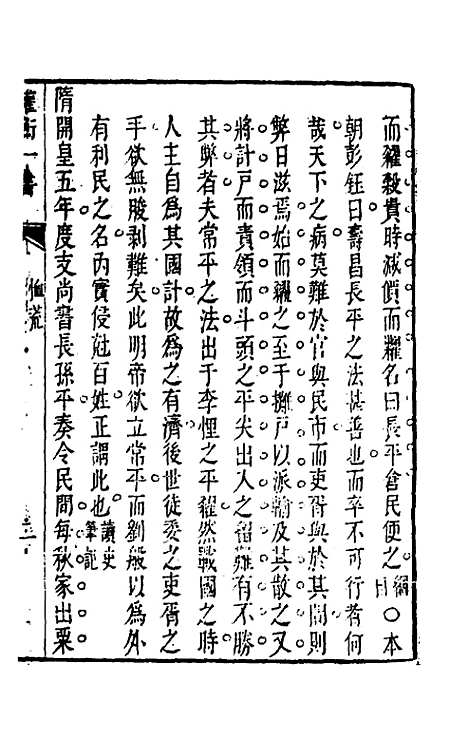 而糴穀貴時減價而糶名曰長平倉民便之 綱目 〇本
朝彭鈺曰壽昌長平之法甚善也而卒不可行者何
哉天下之病莫難於官與民市而吏胥與於其間則
弊日滋焉始而糴之至于攤戶以派輸及其散之又
將計戶而責領而斗頭之平尖出入之留難有不勝
其弊者夫常平之法出于李悝之平糴然戰國之時
人主自為其國計故為之有濟後世徒委之吏胥之
手欲無朘剥難矣此明帝欲立常平而劉般以為外
有利民之名内實侵尅百姓正謂此也 讀史筆記
隋開皇五年度支尚書長孫平奏令民間每秋家出粟
荒